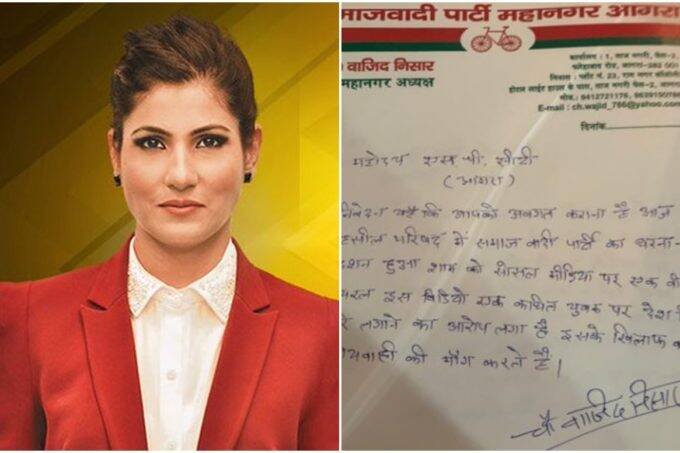 माजवादी पार्टी महानगर आगरा
वाजिद निसार
महानगर अध्यक्ष
कार्यालय : 1, ताज नगरी, फेस-2,
फतेहाबाद रोड, आगरा-282 001
निवास : प्लॉट नं. 23, राम नगर कॉलोनी
के पास, ताज नगरी फेस-2, आगरा
मोब.: 9412721176,
E-mail : ch.wajid_786@yahoo.com
दिनांक
महोदय एस.पी. सीटी
(आगरा)
निवेदन यह है कि आपको अवगत कराना है आज
परिषद में समाज वादी पार्टी का धरना-
हुआ शाम को सोसल मीडिया पर एक
इस विडियो एक कथित युवक पर देश
लगाने का आरोप लगा है इसके खिलाफ
की माँग करते है।
चौ वाजिद निसार